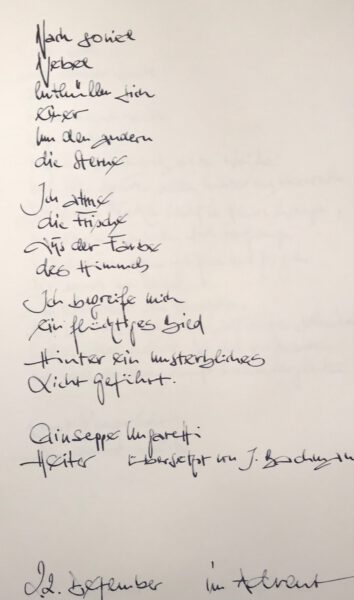 Nach soviel
Nebel
enthüllen sich
einer
um den andern
die Sterne
Ich atme
die Frische
Aus der Farbe
des Himmels
Ich begreife mich
ein flüchtiges Bild
Hinter ein unsterbliches
Licht geführt.
Giuseppe Ungaretti
Heiter übersetzt von I. Bachmann
22. Dezember im Advent